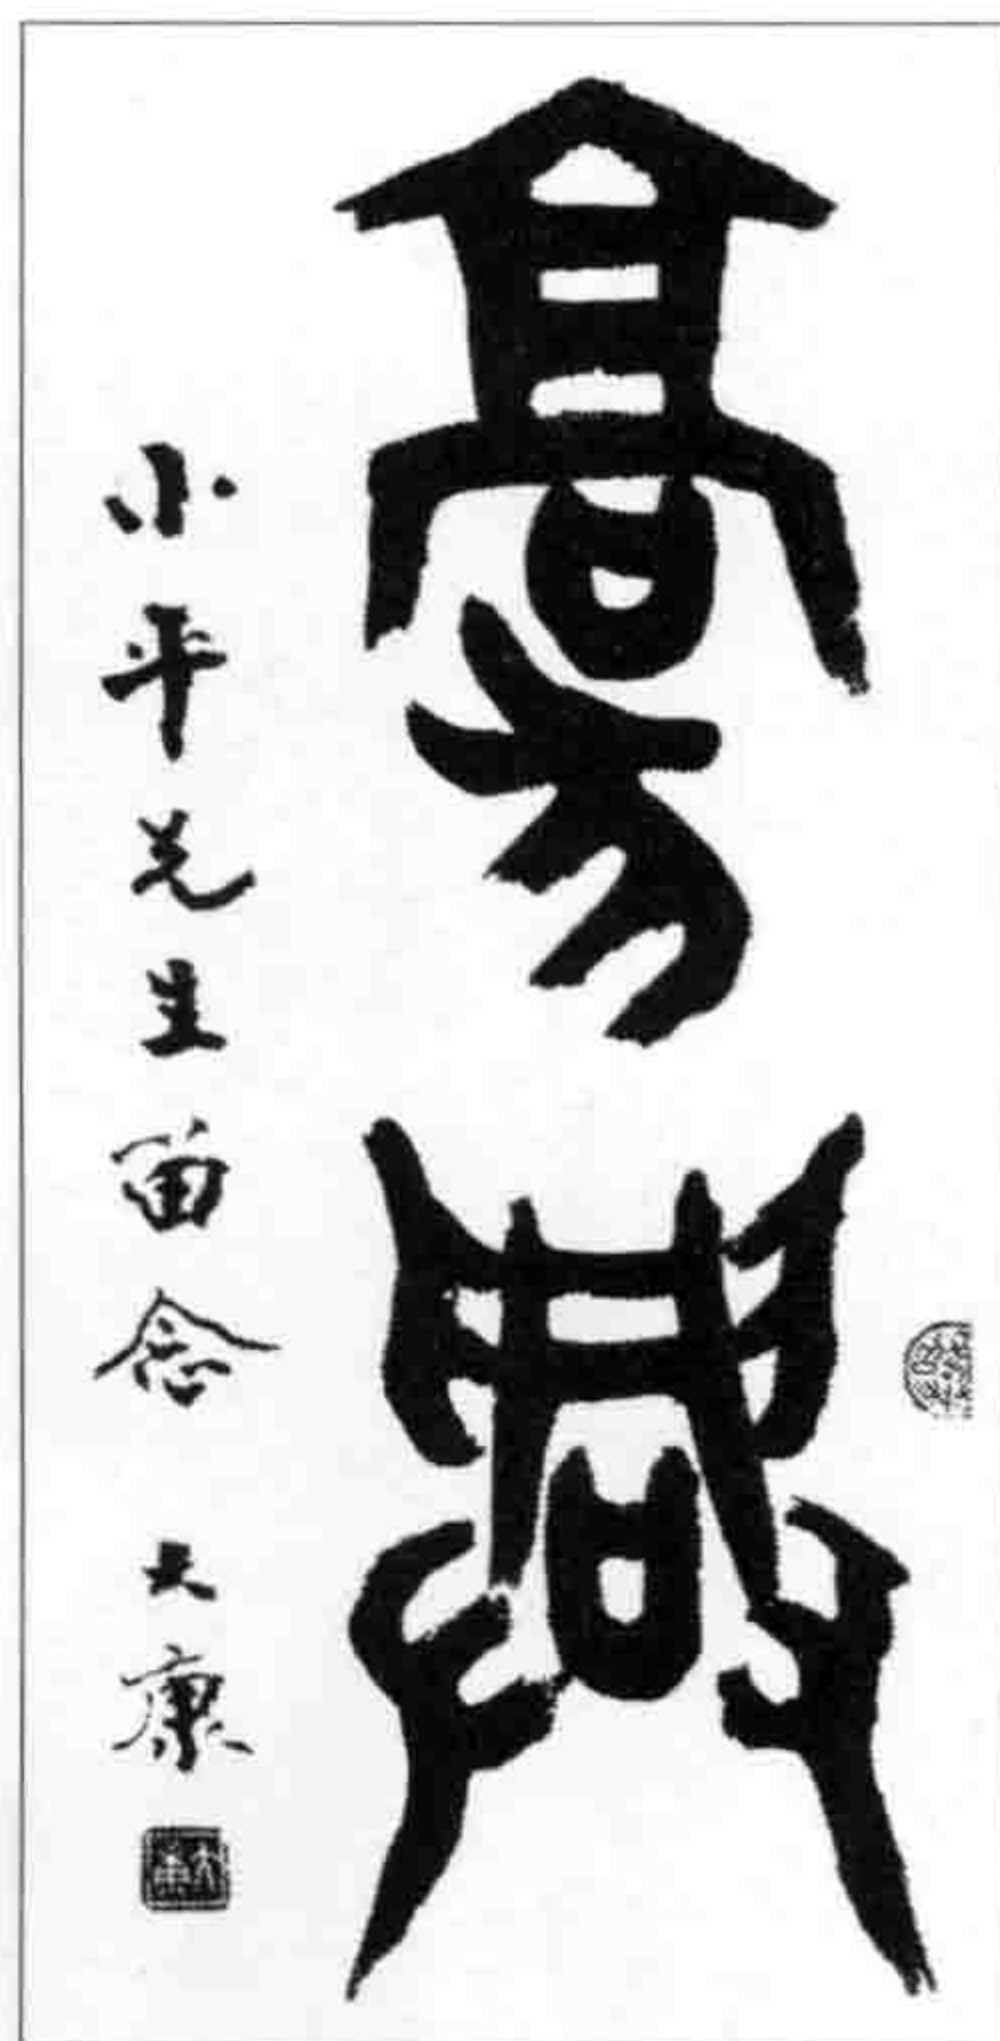 豪興
小平先生留念 大康